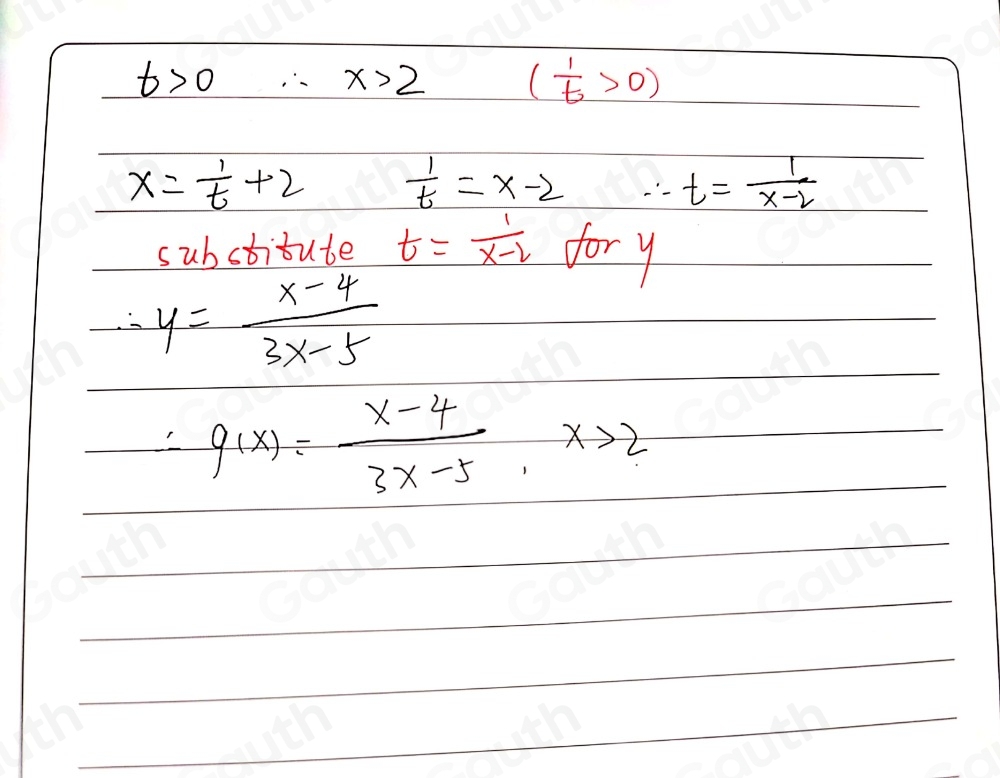 t>0 ∴ x>2 (1/t >0)
x = 1/t +2 1/t = x-2 ∴ t = 1/(x-2)
substitute t = 1/(x-2) for y
∴ y = (x-4)/(3x-5)
∴ g(x) = (x-4)/(3x-5), x>2
Gauth